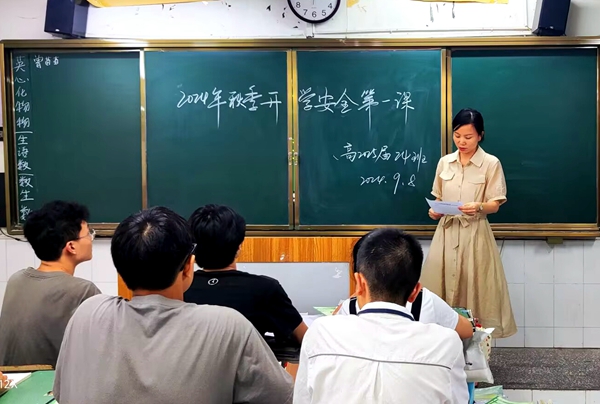 2024年秋季开学安全第一课
高205届24班
2024.9.8
英心化物物生